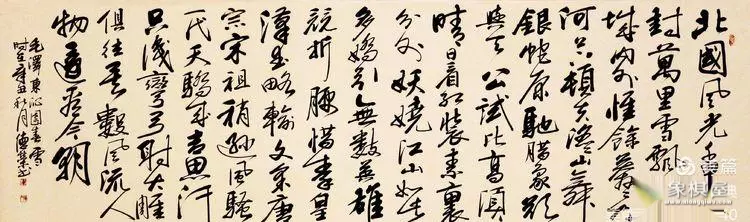 北國風光千
封萬里雪飄
城内外惟餘莽
河上下頓失滔滔山舞
銀蛇原馳蠟象欲
與天公試比高須
晴日看紅裝素裹
分外妖嬈江山如此
多嬌引無數英雄
競折腰惜秦皇
漢武略輸文采唐
宗宋祖稍遜風騷
一代天驕成吉思汗
只識彎弓射大雕
俱往矣數風流人
物還看今朝
毛澤東沁園春雪
時在辛丑秋月
美篇
象棋